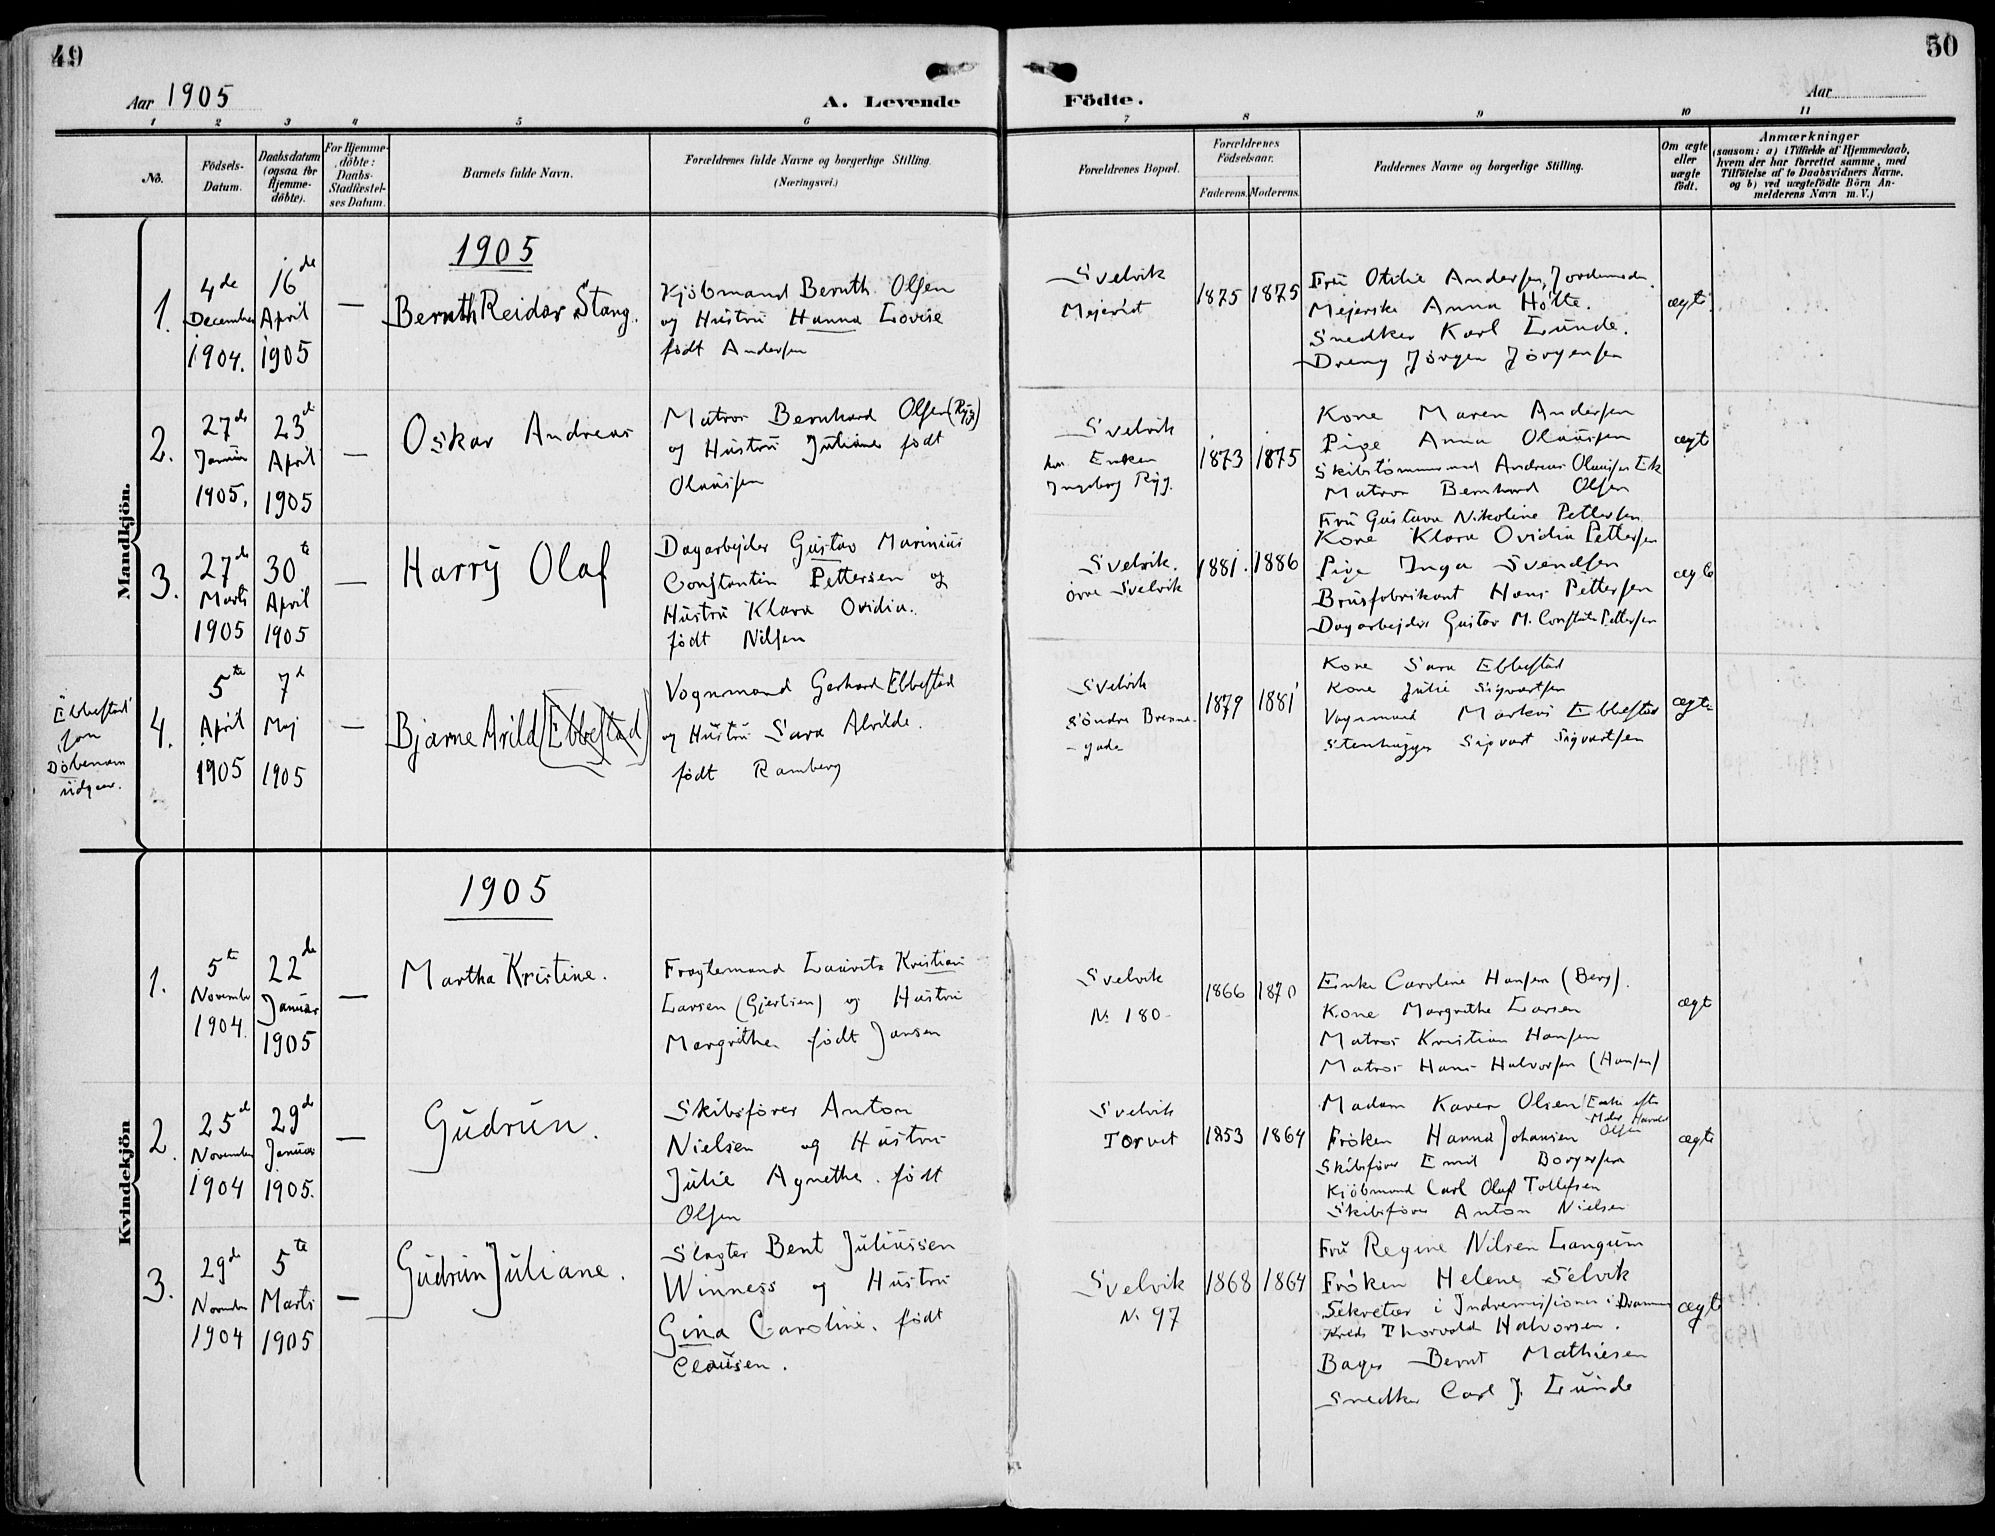 49
50
Aar 1905
A. Levende
Födte.
Aar
1 2 3 4 5 6 7 8 9 10 11
No.
Födsels-
Datum.
Daabsdatum
(ogsaa for
Hjemme-
döbte).
For Hjemme-
döbte:
Daabs-
Stadfæstel-
ses Datum.
Barnets fulde Navn.
Forældrenes fulde Navne og borgerlige Stilling.
(Næringsvei.)
Forældrenes Bopæl.
Forældrenes
Födselsaar.
Faderens. Moderens.
Faddernes Navne og borgerlige Stilling.
Om ægte
eller
uægte
födt.
Anmærkninger
(saasom: a) i Tilfælde af Hjemmedaab,
hvem der har forrettet samme, med
Tilföielse af to Daabsvidners Navne,
og b) ved uægtefödte Börn An-
melderens Navn m.V.)
Mandkjön.
1905
1.
4de
December
1904.
16de
April
1905
—
Bernth Reidar Stang.
Kjöbmand Bernth Olsen
og Hustru Hanna Lovise
födt Andersen
Svelvik
Mejeriet
1875
1875
Fru Otilie Andersen, Jordemoder.
Mejerske Anna Holte.
Snedker Karl Lunde.
Dreng Jörgen Jörgensen
ægte
2.
27de
Januar
1905.
23de
April
1905
—
Oskar Andreas
Matros Bernhard Olsen (Ryg)
og Hustru Juliane födt
Olaussen
Svelvik
hos Enken
Ingeborg Ryg.
1873
1875
Kone Maren Andersen
Pige Anna Olaussen
Skibstömmermand Andreas Olaussen Ek
Matros Bernhard Olsen
Fru Gustava Nikoline Pettersen
ægte
3.
27de
Marts
1905
30te
April
1905
—
Harry Olaf
Dagarbejder Gustav Marinius
Constantin Pettersen og
Hustru Klara Ovidia.
födt Nilsen
Svelvik.
övre Svelvik
1881.
1886
Kone Klara Ovidia Pettersen
Pige Inga Svendsen
Brusfabrikant Hans Pettersen
Dagarbejder Gustav M. Constantin Pettersen
ægte
Ebbestad
som
Döbenavn
udgaar.
4.
5te
April
1905
7de
Maj
1905
—
Bjarne Arild [Ebbestad]
Vognmand Gerhard Ebbestad
og Hustru Sara Alvilde.
födt Ramberg
Svelvik
Söndre Brenne-
- gade
1879
1881
Kone Sara Ebbestad
Kone Julie Sigvartsen
Vognmand Markus Ebbestad
Stenhugger Sigvart Sigvartsen
ægte
Kvindekjön
1905
1.
5te
November
1904.
22de
Januar
1905
—
Martha Kristine.
Fragtemand Lauritz Kristian
Larsen (Gjertsen) og Hustru
Margrethe födt Jansen
Svelvik
No 180
1866
1870
Enke Caroline Hansen (Berg).
Kone Margrethe Larsen
Matros Kristian Hansen
Matros Hans Halvorsen (Hansen)
ægte
2.
25de
November
1904
29de
Januar
1905.
—
Gudrun.
Skibsförer Anton
Nielsen og Hustru
Julie Agnethe. födt
Olsen
Svelvik
Torvet
1853
1864
Madam Karen Olsen (Enke efter
Harald
Olsen
Fröken Hanna Johansen
Skibsförer Emil Borgersen
Kjöbmand Carl Olaf Tollefsen
Skibsförer Anton Nielsen
ægte
3.
29de
November
1904
5te
Marts
1905
—
Gudrun Juliane.
Slagter Bent Juliussen
Winness og Hustru
Gina Caroline. födt
Clausen.
Svelvik
No 97
1868
1864
Fru Regine Nilsen Langum
Fröken Helene Selvik
Sekretær i Indremissionen i Drammens
Kreds Thorvald Halvorsen.
Bager Bernt Mathiesen
Snedker Carl J. Lunde
ægte